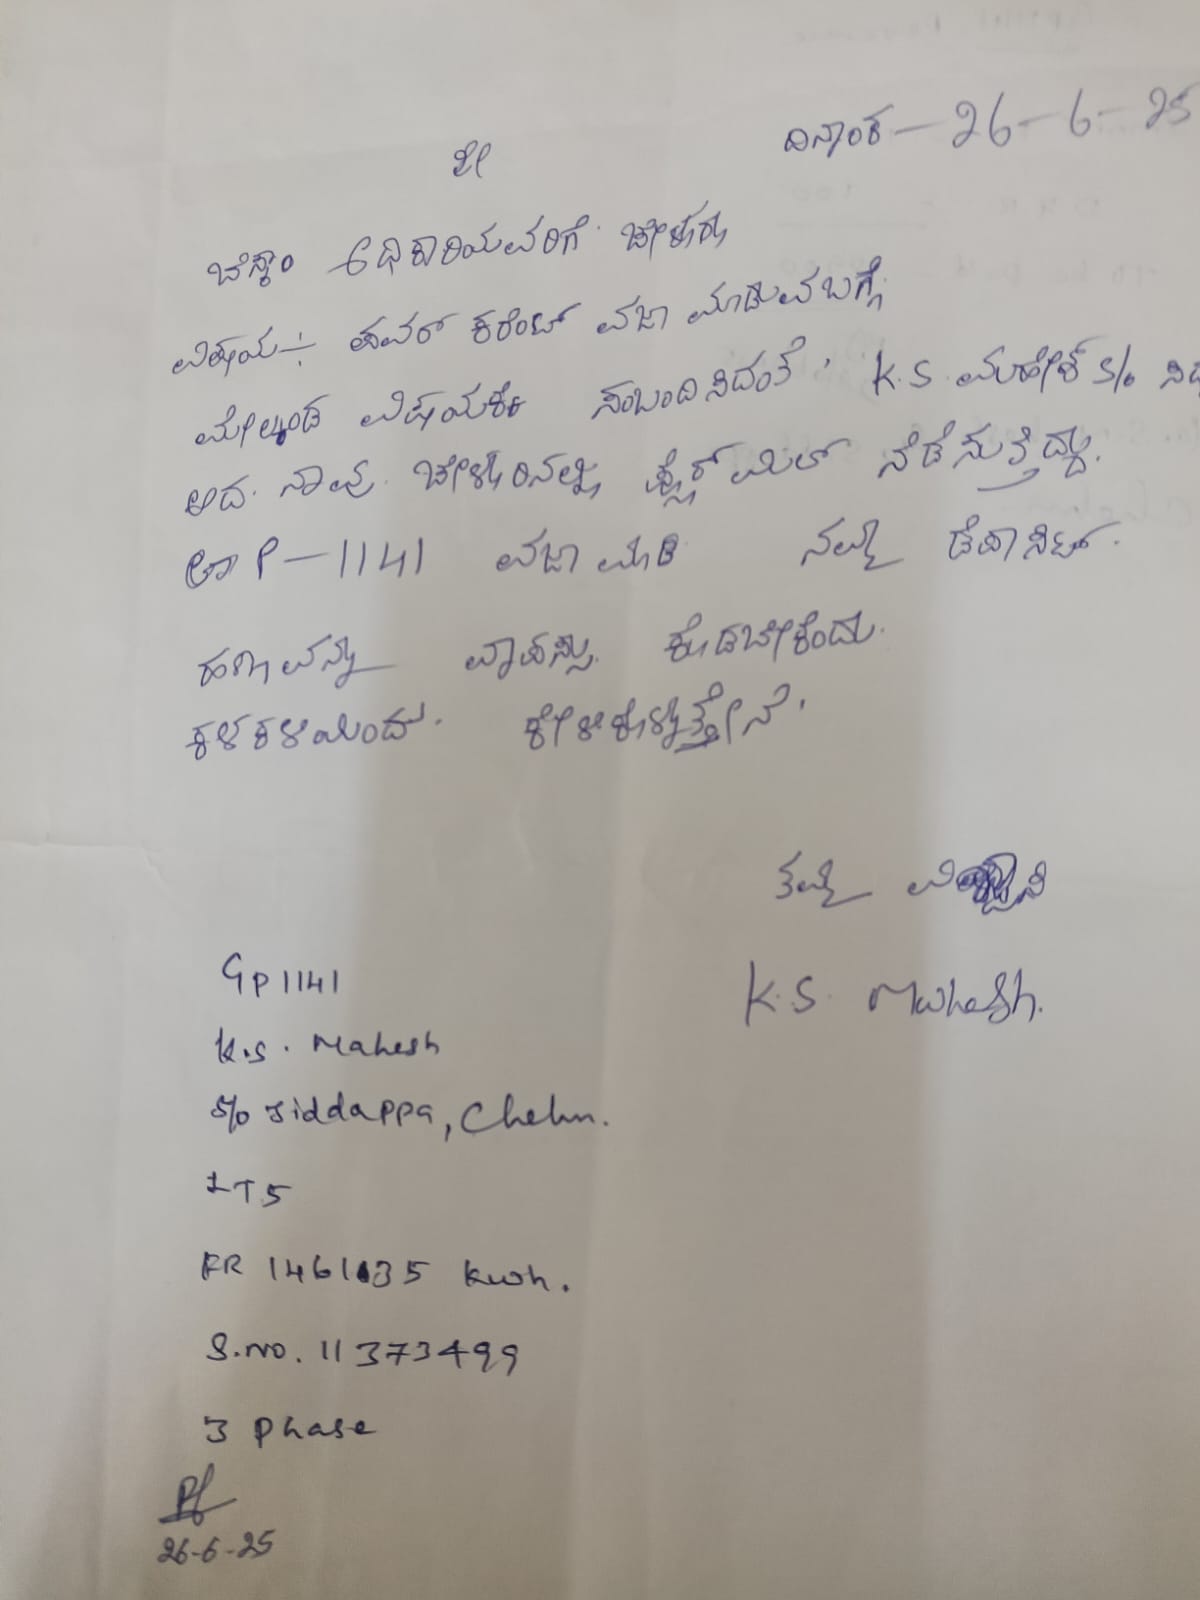 ದಿನಾಂಕ - 26-6-25
ಶ್ರೀ
ಬೆಸ್ಕಾಂ ಅಧಿಕಾರಿಯವರಿಗೆ ಚೇಳೂರು
ವಿಷಯ:- ಪಾವರ್ ಕರೆಂಟ್ ವಜಾ ಮಾಡುವ ಬಗ್ಗೆ
ಮೇಲ್ಕಂಡ ವಿಷಯಕ್ಕೆ ಸಂಬಂದಿಸಿದಂತೆ K.S ಮಹೇಶ್ S/o
ಆದ ನಾವು ಚೇಳೂರಿನಲ್ಲಿ ಪ್ಲೋರ್ ಮಿಲ್ ನೆಡೆಸುತ್ತಿದ್ದು.
P-1141 ವಜಾ ಮಾಡಿ ನಮ್ಮ ಡೆಪಾಸಿಟ್.
ಹಣವನ್ನು ವಾಪಸ್ಸು ಕೊಡಬೇಕೆಂದು.
ಕಳಕಳಿಯಿಂದ. ಕೇಳಿಕೊಳ್ಳುತ್ತೇನೆ.
ತಮ್ಮ ವಿಶ್ವಾಸಿ
K.S. Mahesh.
GP1141
K.S. Mahesh
S/o Siddappa, Chelur.
LT5
FR 1461135 kwh.
S.no. 11373499
3 Phase
26-6-25